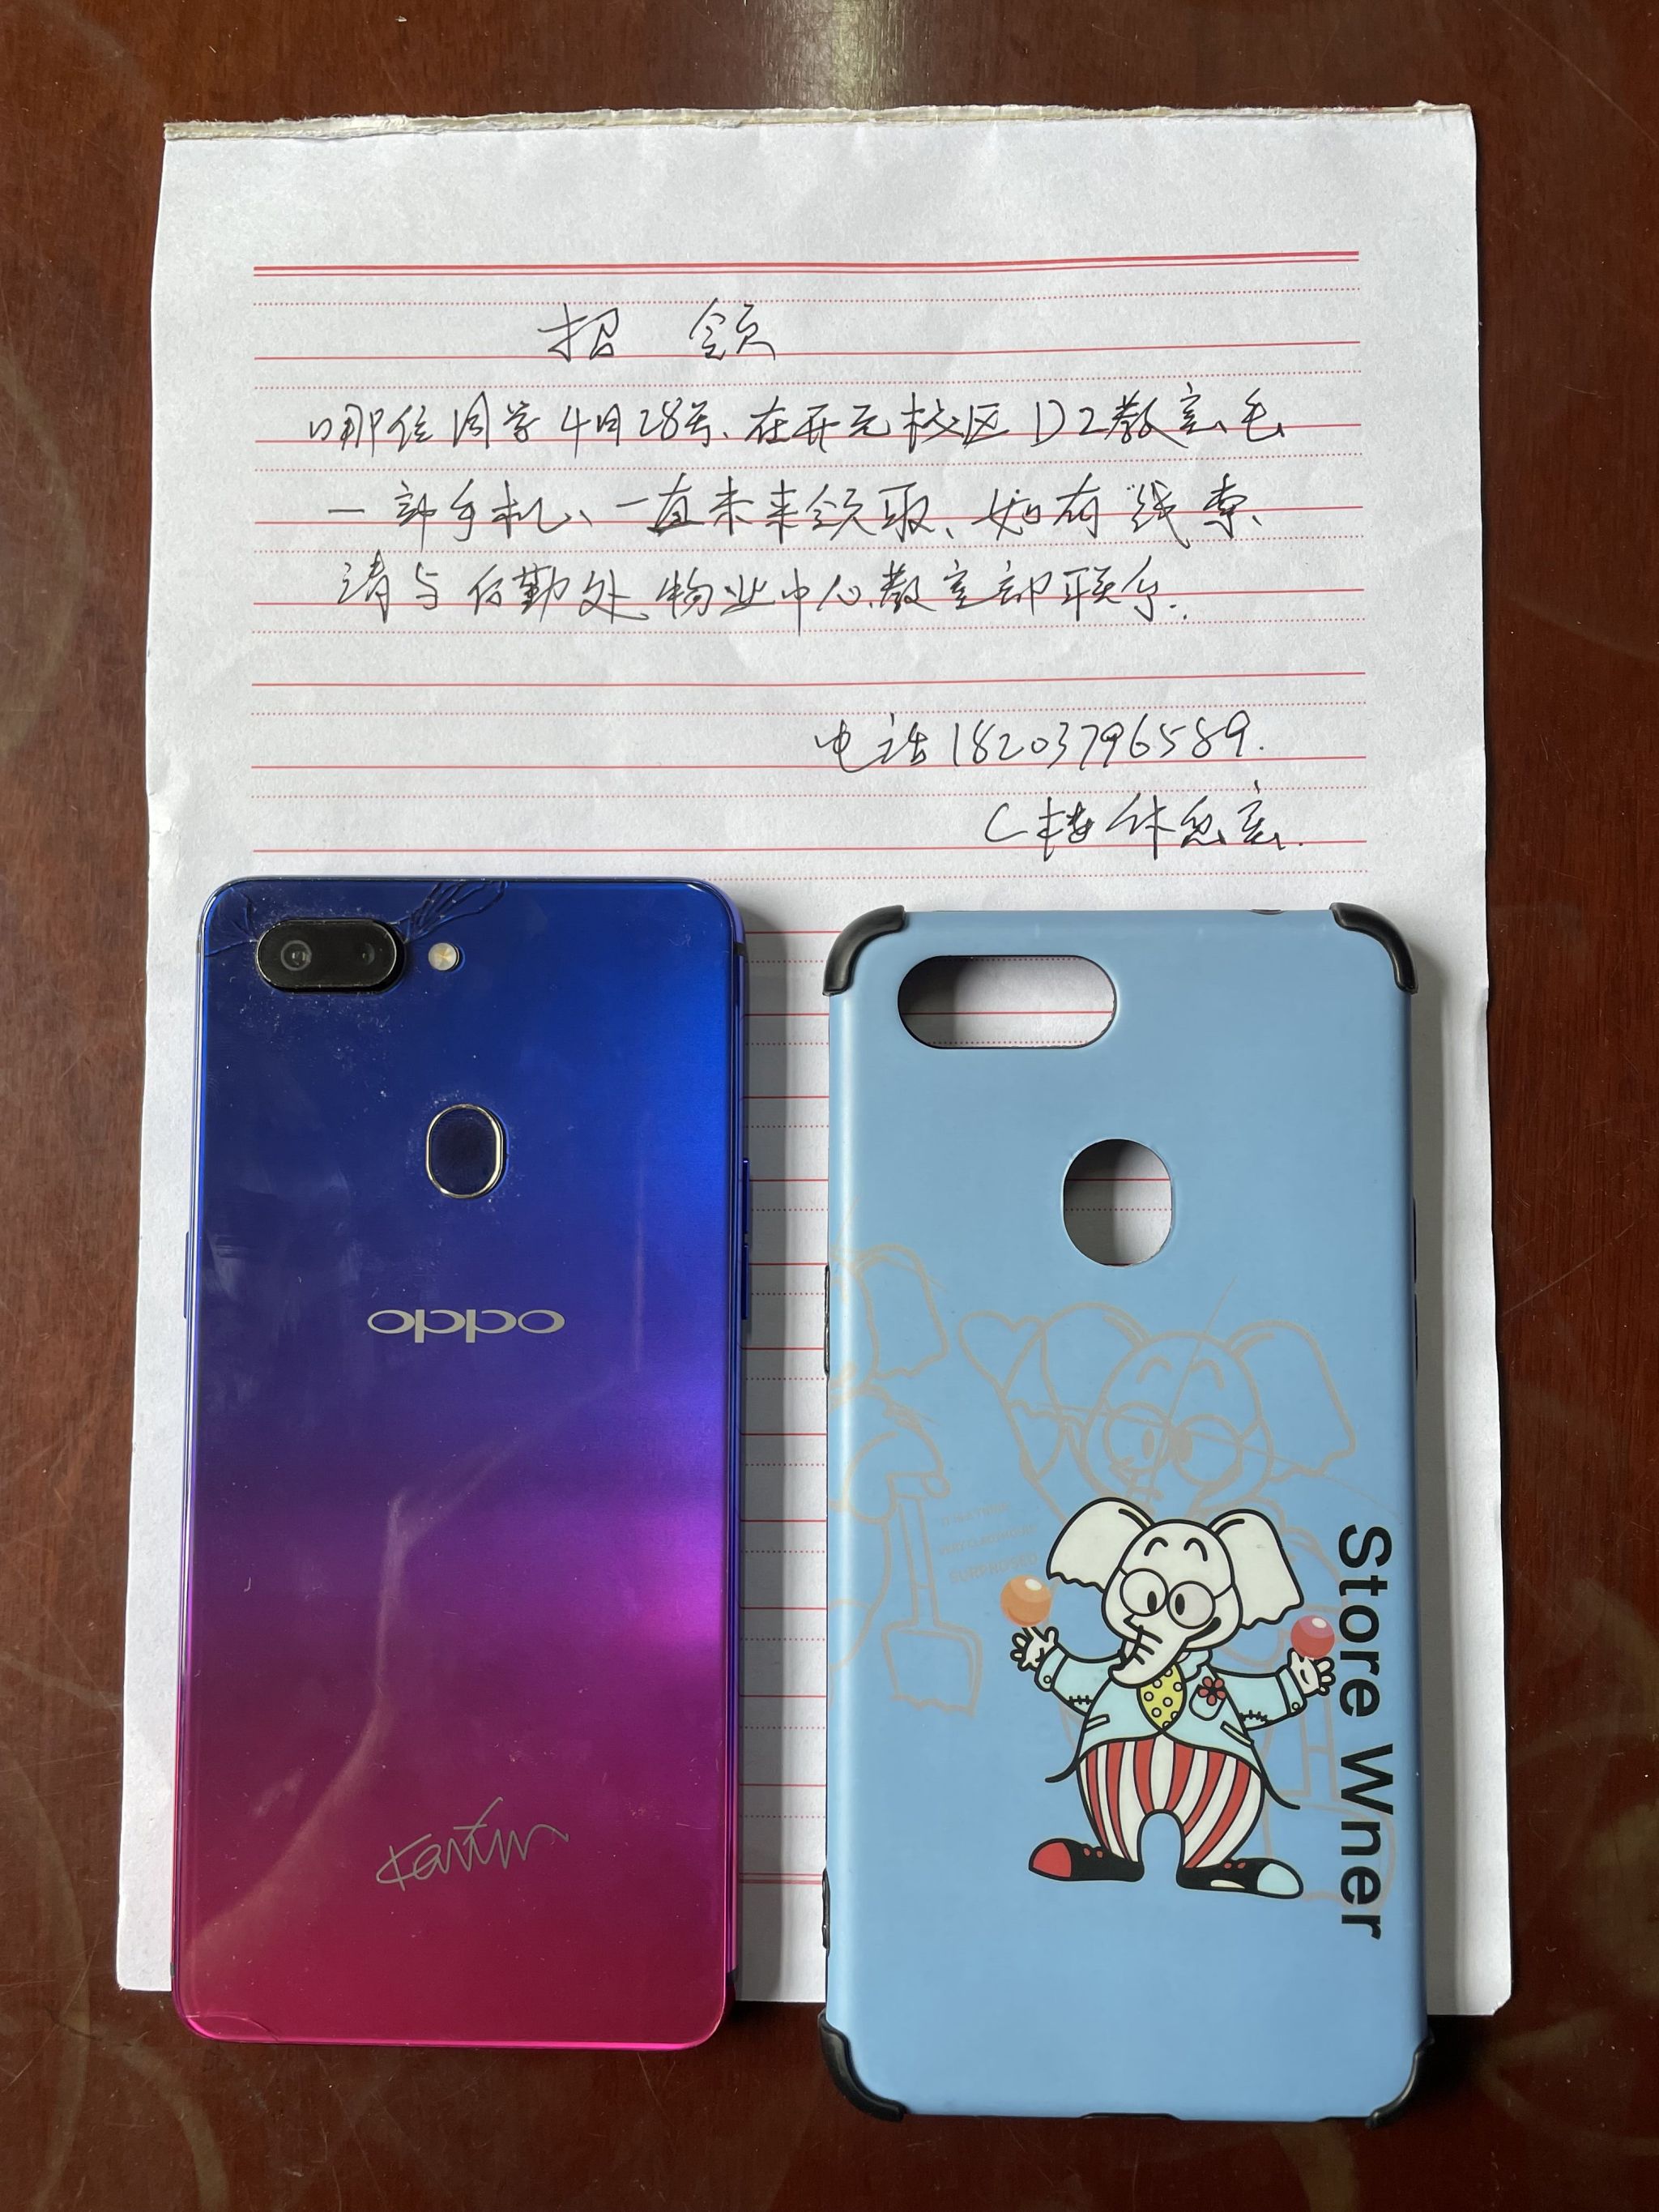 招 领
哪位同学4月28号、在开元校区D2教室、丢
一部手机、一直未来领取、如有线索、
请与后勤处、物业中心教室部联系.
电话18203796589.
C楼休息室.
oppo
SURPRISED
Store Wner